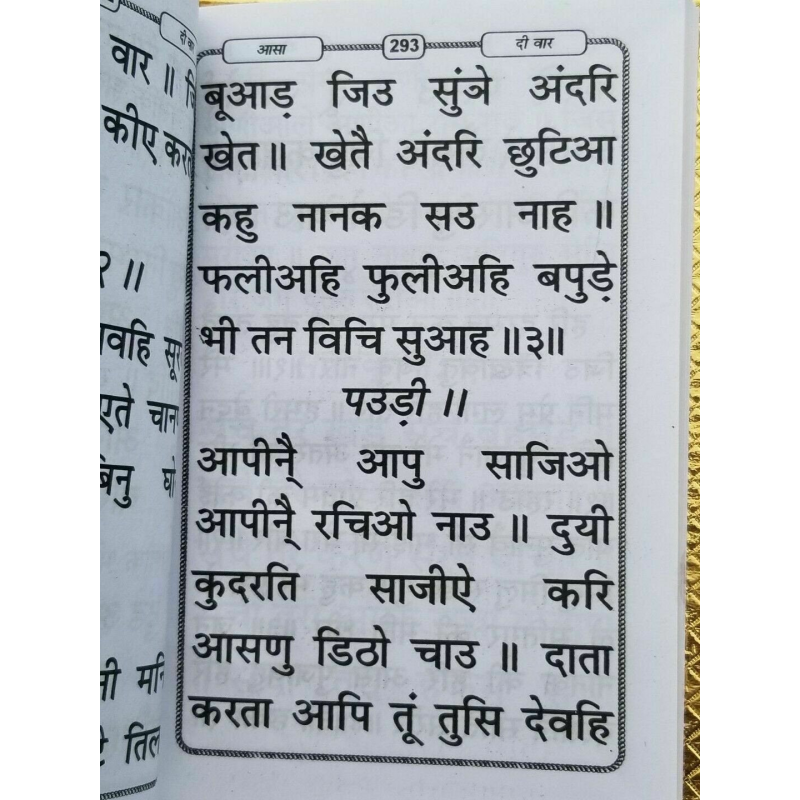 दी वा
वार ॥
कीए कर
२ ॥
वहि सू
एते चान
बिनु घो
ी मनि
तिल
आसा 293 दी वार
बूआड़ जिउ सुंञे अंदरि
खेत॥ खेतै अंदरि छुटिआ
कहु नानक सउ नाह ॥
फलीअहि फुलीअहि बपुड़े
भी तन विचि सुआह ॥३॥
पउड़ी ॥
आपीनै् आपु साजिओ
आपीनै् रचिओ नाउ ॥ दुयी
कुदरति साजीऐ करि
आसणु डिठो चाउ ॥ दाता
करता आपि तूं तुसि देवहि